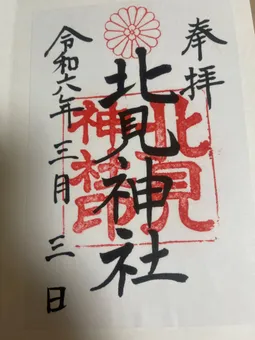 奉拝
北見神社
北見
神社印
令和六年 三月 三 日